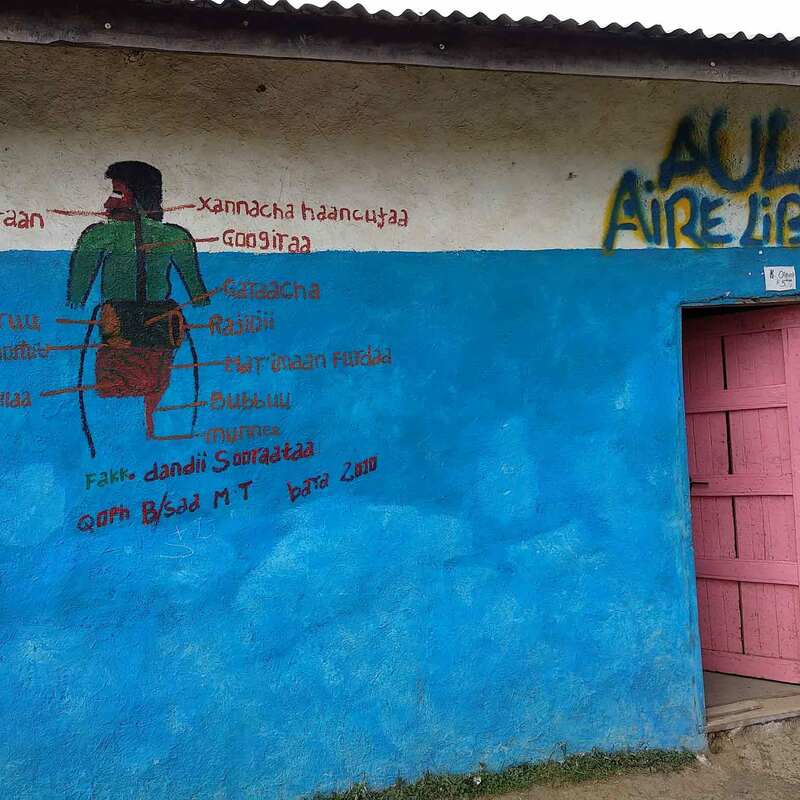 xannacha haancufaa
Googiraa
Garaacha
Rajijii
Marimaan Furdaa
Bubbuu
munnee
Fakk. dandii Sooraataa
Qoph B/saa M T bara 2010
AUL
AiRE LiB